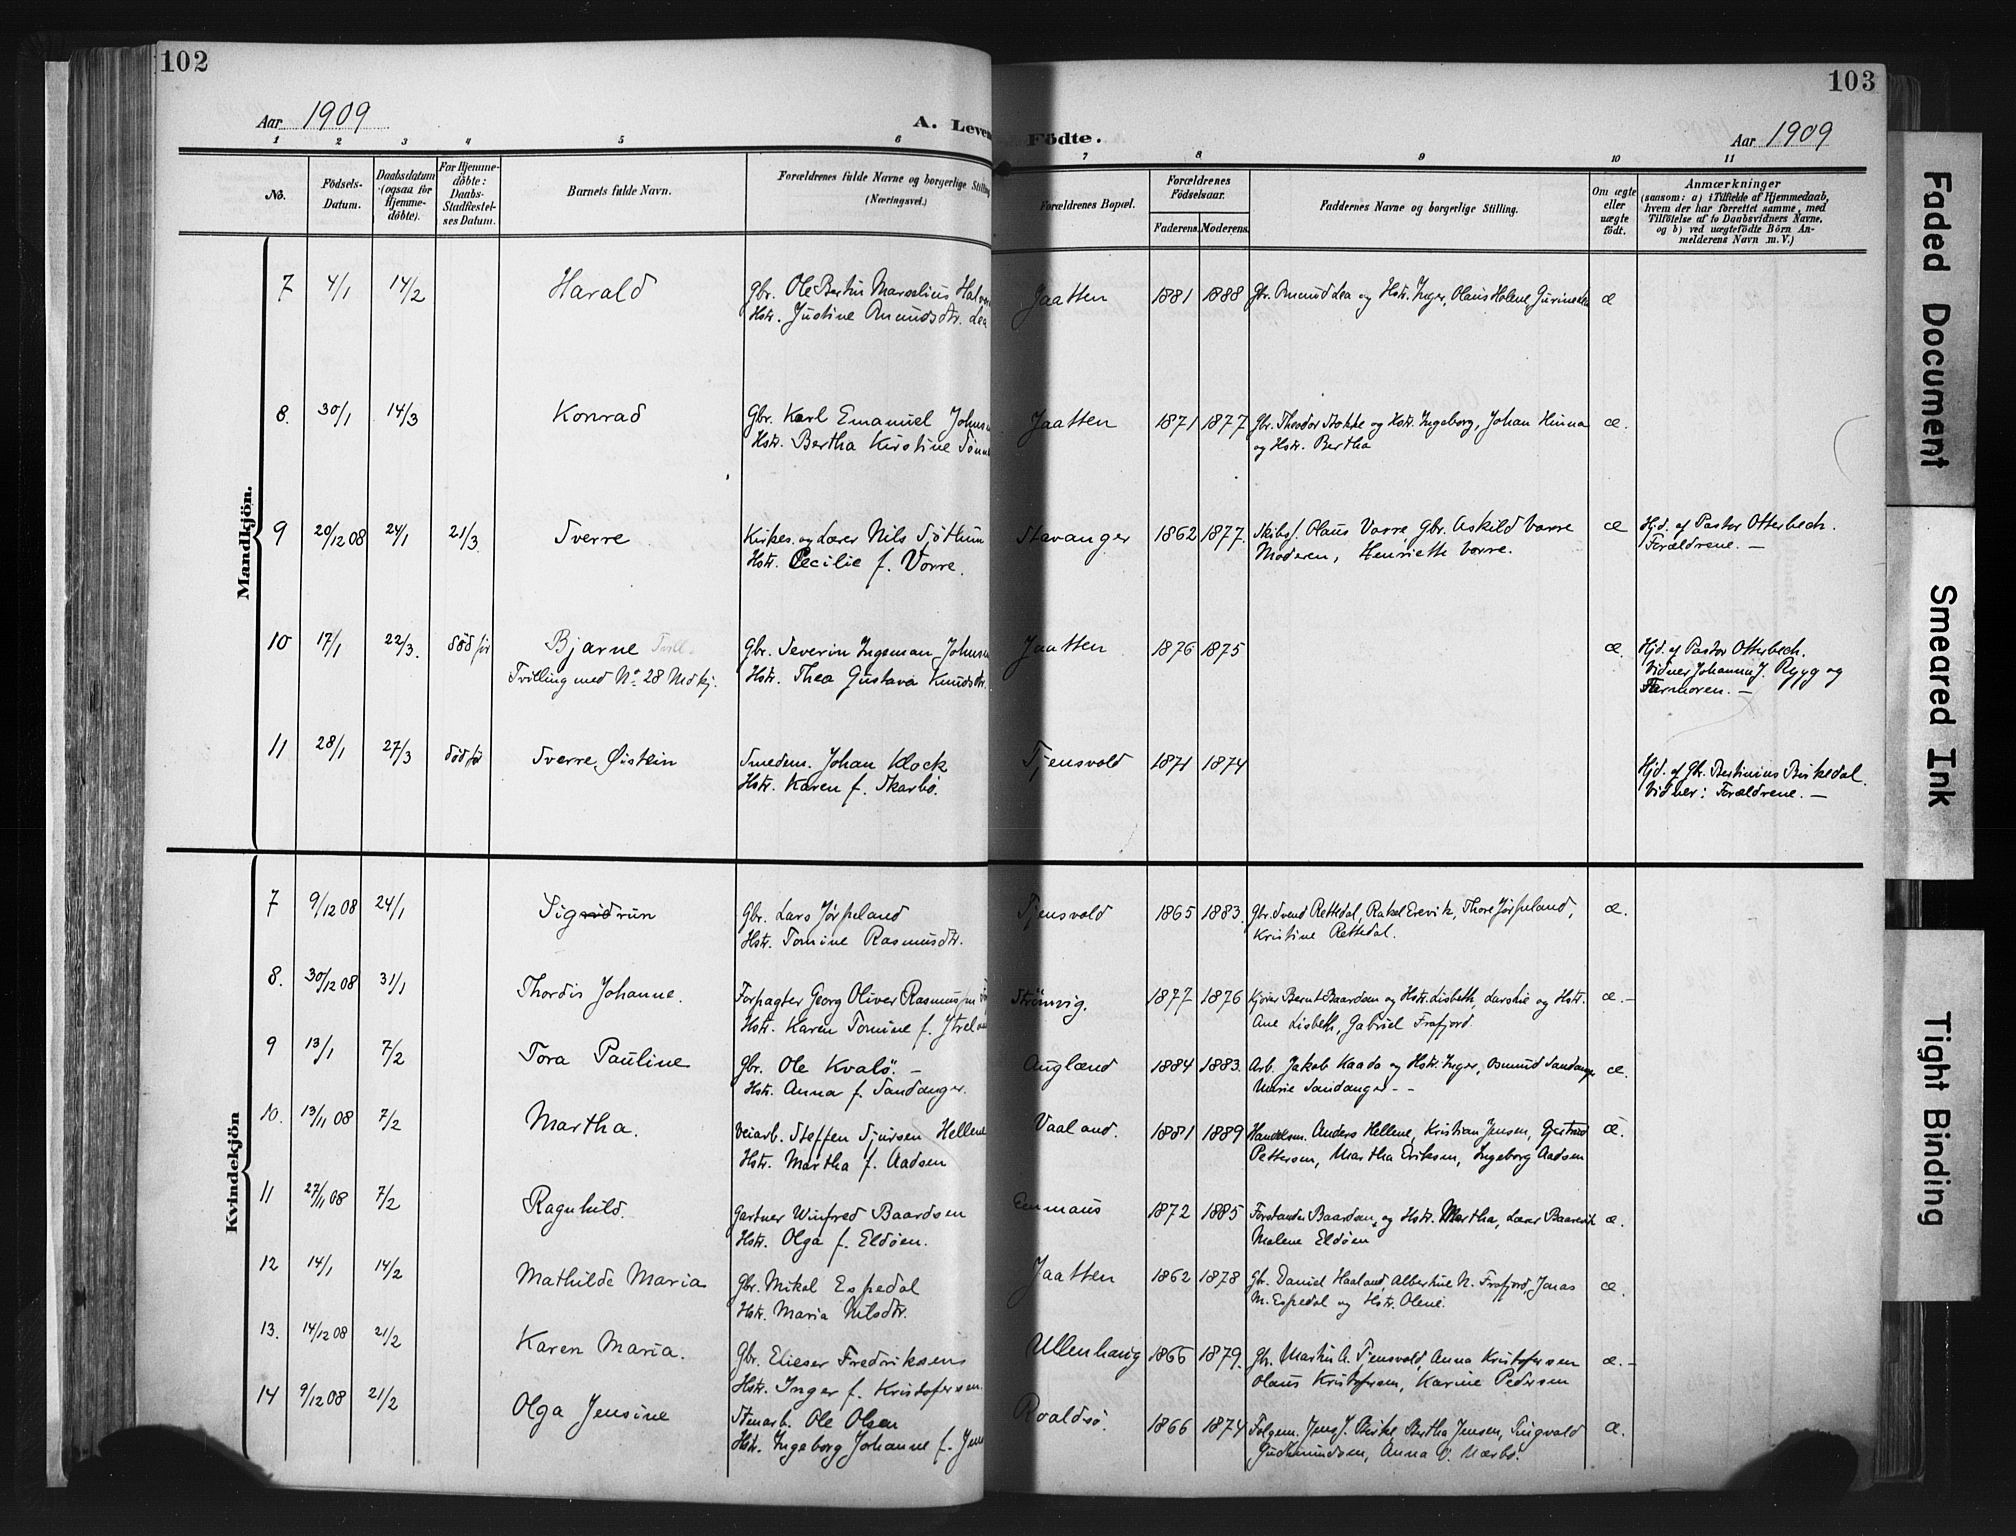 102
103
Aar 1909
A. Leven
Födte.
Aar 1909
1 2 3 4 5 6 7 8 9 10 11
No.
Födsels-
Datum.
Daabsdatum
(ogsaa for
Hjemme-
döbte).
For Hjemme-
döbte:
Daabs-
Stadfæstel-
ses Datum.
Barnets fulde Navn.
Forældrenes fulde Navne og borgerlige Stilling
(Næringsvei.)
Forældrenes Bopæl.
Forældrenes
Födselsaar.
Faderens. Moderens.
Faddernes Navne og borgerlige Stilling.
Om ægte
eller
uægte
födt.
Anmærkninger
(saasom: a) i Tilfælde af Hjemmedaab,
hvem der har forrettet samme, med
Tilföielse af to Daabsvidners Navne,
og b) ved uægtefödte Börn An-
melderens Navn m. V.)
Mandkjön.
7 4/1 14/2 Harald Gbr. Ole Bertin Marselius Jaatten 1881 1888 Gbr. Amund Lea og Hstr. Inger, Olaus Holene, æ
Hstr. Justine Amundsdtr. Lea
8. 30/1 14/3 Konrad Gbr. Karl Emanuel Johns Jaatten 1871 1877 Gbr. Theodor Stokke og Hstr. Ingeborg, Johan Hinna æ.
Hstr. Bertha Kirstine og Hstr. Bertha
9 20/12 08 24/1 21/3. Sverre Kirkes. og Lærer Nils Sjöthun Stavanger 1862 1877. Skibsf. Olaus Vorre, Gbr. Askild Vorre æ Hjd. af Pastor Otterbech.
Hstr. Cecilie f. Vorre. Moderen, Henriette Vorre. Forældrene. —
10 17/1 22/3. död för Bjarne Gbr. Severin Ingeman Johns Jaatten 1876 1875 æ. Hjd. af Pastor Otterbech.
Tvilling med No. 28 Mdkj. Hstr. Thea Gustava Knudsdtr. Vidner Johannes J. Rygg og
Farmoren. —
11 28/1 27/3 död för Sverre Øistein Smedem. Johan Klock Tjensvold 1871 1874 Hjd. af Gbr. Bertinius Birkedal.
Hstr. Karen f. Skarbö. Vidner: Forældrene. —
Kvindekjön
7 9/12 08 24/1 Sigridrun Gbr. Lars Jørpeland Tjensvold 1865 1883. Gbr. Svend Rettedal, Rakel Erevik, Thore Jørpeland, æ.
Hstr. Tomine Rasmusdtr. Kristine Rettedal.
8. 30/12 08 31/1 Thordis Johanne. Forpagter Georg Oliver Rasmussen Strömvig. 1877 1876 Kjører Bernt Baardsen og Hstr. Lisbeth, Lars Lie og Hstr. æ.-
Hstr. Karen Tomine f. Ane Lisbeth, Gabriel Frafjord.
9 13/1 7/2 Tora Pauline Gbr. Ole Kvalö. - Auglænd 1884 1883. Arb. Jakob Kaada og Hstr. Inger, Osmund Sandanger æ.
Hstr. Anna f. Sandanger. Marie Sandanger - -
10. 13/11 08 7/2 Martha. Veiarb. Steffen Sjursen Hellene Vaaland. 1881 1889 Handelsm. Anders Hellene, Kristian Jensen, Gjertrud æ.
Hstr. Martha f. Aadsen Pettersen, Martha Eriksen, Ingeborg Aadsen
11 27/11 08 7/2 Ragnhild. Gartner Winfred Baardsen Emmaus 1872 1885 Forstander Baardsen og Hstr. Martha, Lærer æ.
Hstr. Olga f. Eldöen. Malene Eldöen
12 14/1 14/2 Mathilde Maria Gbr. Mikal Espedal Jaatten 1862 1878 Gbr. Daniel Haaland, Albertine N. Frafjord, Jonas æ.
Hstr. Maria Nilsdtr. M. Espedal og Hstr. Olene.
13. 14/12 08 21/2 Karen Maria. Gbr. Elieser Fredriksens Ullenhaug 1866 1879. Gbr. Martin A. Tjensvold, Anna Kristofersen æ.-
Hstr. Inger f. Kristofersen. Olaus Kristofersen, Karine Pedersen
14 9/12 08 21/2 Olga Jensine Stenarb. Ole Olsen Roaldsö. 1866 1874 Folgem. Jens J. Birke, Bertha Jensen, Tingvald æ.
Hstr. Ingeborg Johanne f. Gudmundsen, Anna O. Nærbö.
Faded Document
Smeared Ink
Tight Binding